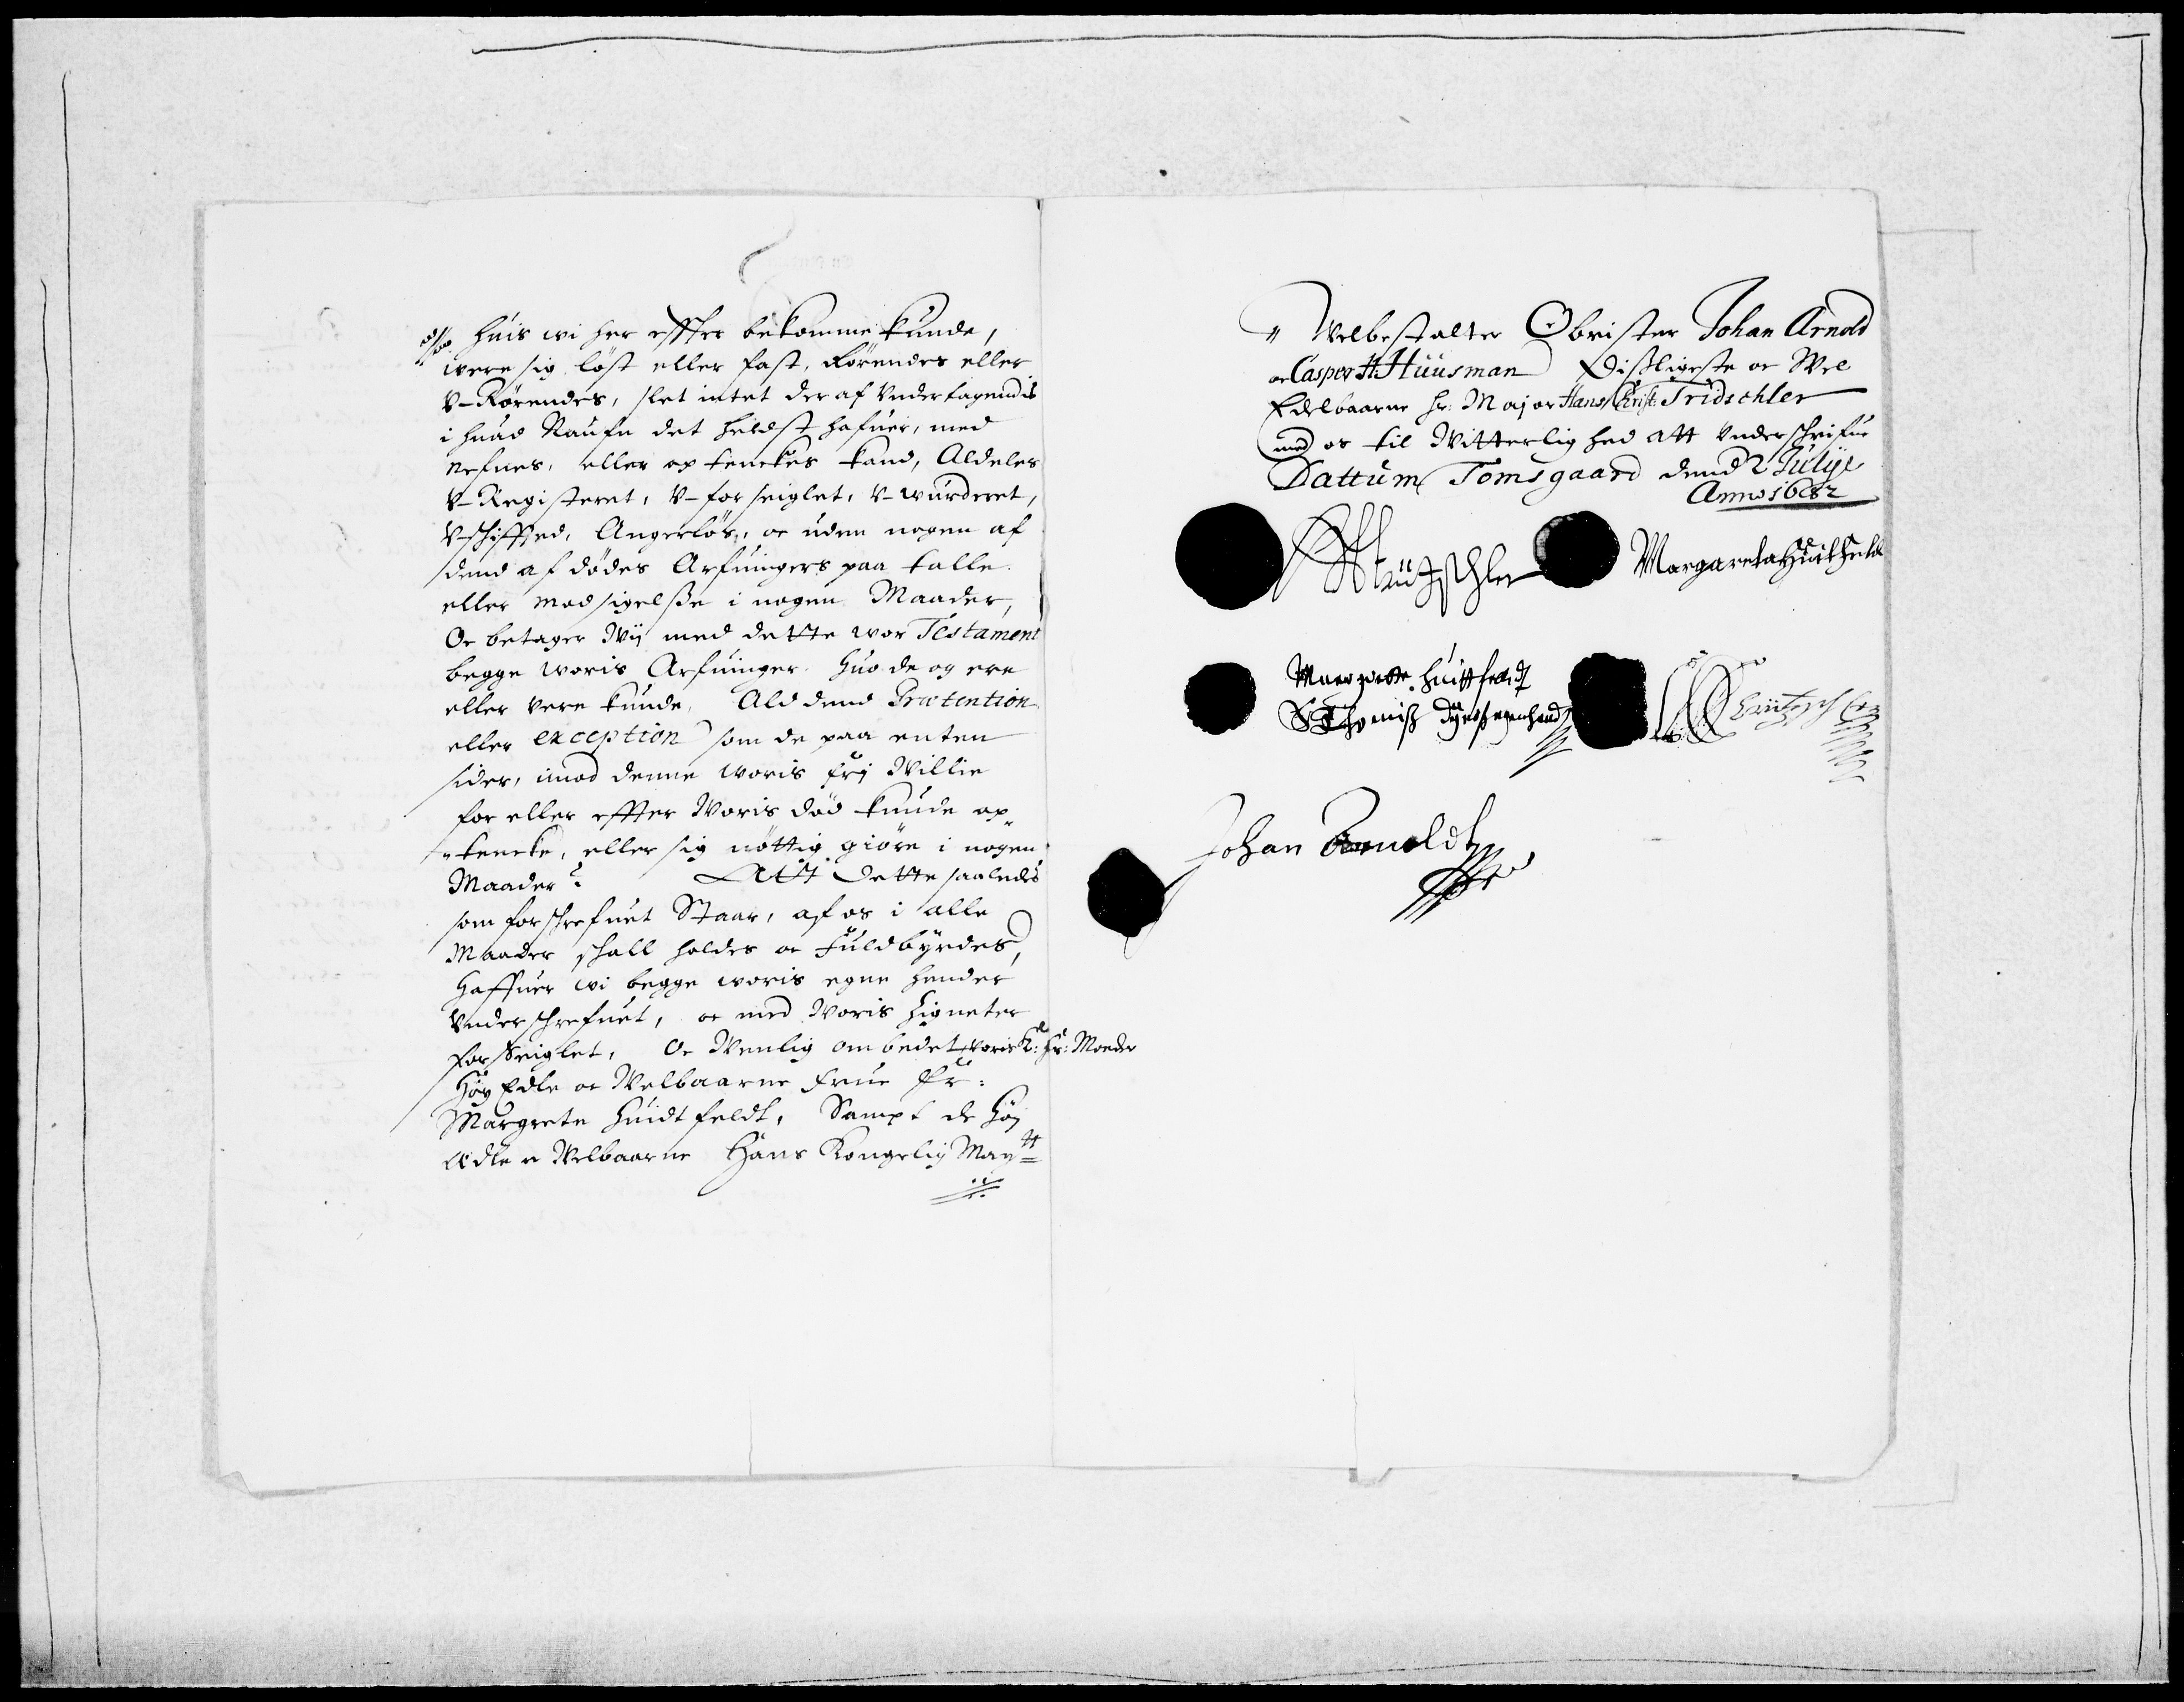 huis wi her effter bekomme kunde,
were sig løst eller fast, Rørendes eller
V-Rørendes, slet intet der af Vndertagendis
i huad Naufn det heldst hafuer, med
nefnes, eller op tenckes kand, Aldeles
V-Registeret, V-forseiglet, V-wurderet,
Vschifted, Angerløs, oc uden nogen af
dend af dødes Arfuingers paa talle
eller modsigelsse i nogen Maader,
Oc betager Wij med dette wor Testament
begge woris Arfuinger huo de og ere
eller vere kunde, Ald dend Prætention
eller exception som de paa enten
sider, imod denne woris frj Willie
for eller effter Woris død kunde op-
tencke, eller sig nøttig giøre i nogen
Maader. Att Dette saaledes
som forschrefuet Staar, af os i alle
Maader schall holdes oc Fuldbyrdes,
Haffuer wi begge woris egne hender
Vnderschrefuet, oc med Woris Signeter
forseiglet, Oc Wenlig ombedet woris K: Fr: Moeder
Høy Edle oc Welbaarne Frue Fr:
Margrete Huidtfeldt, Sampt de Høy
Edle oc Welbaarne Hans Kongelig Maytt
Welbestalter Obrister Johan Arnold
oc Casper H: Huusman Disligeste oc Wel
Edelbaarne Hr: Major Hans Christ: Tridschler
med os til Witterlighed att Vnderschrifue
Dattum Tomsgaard dend 2 Julije
Anno 1682
Margareta Huitfeld
Margrette Huittfeldt
S Thomiss dyressegenhand
Johan Arnoldt